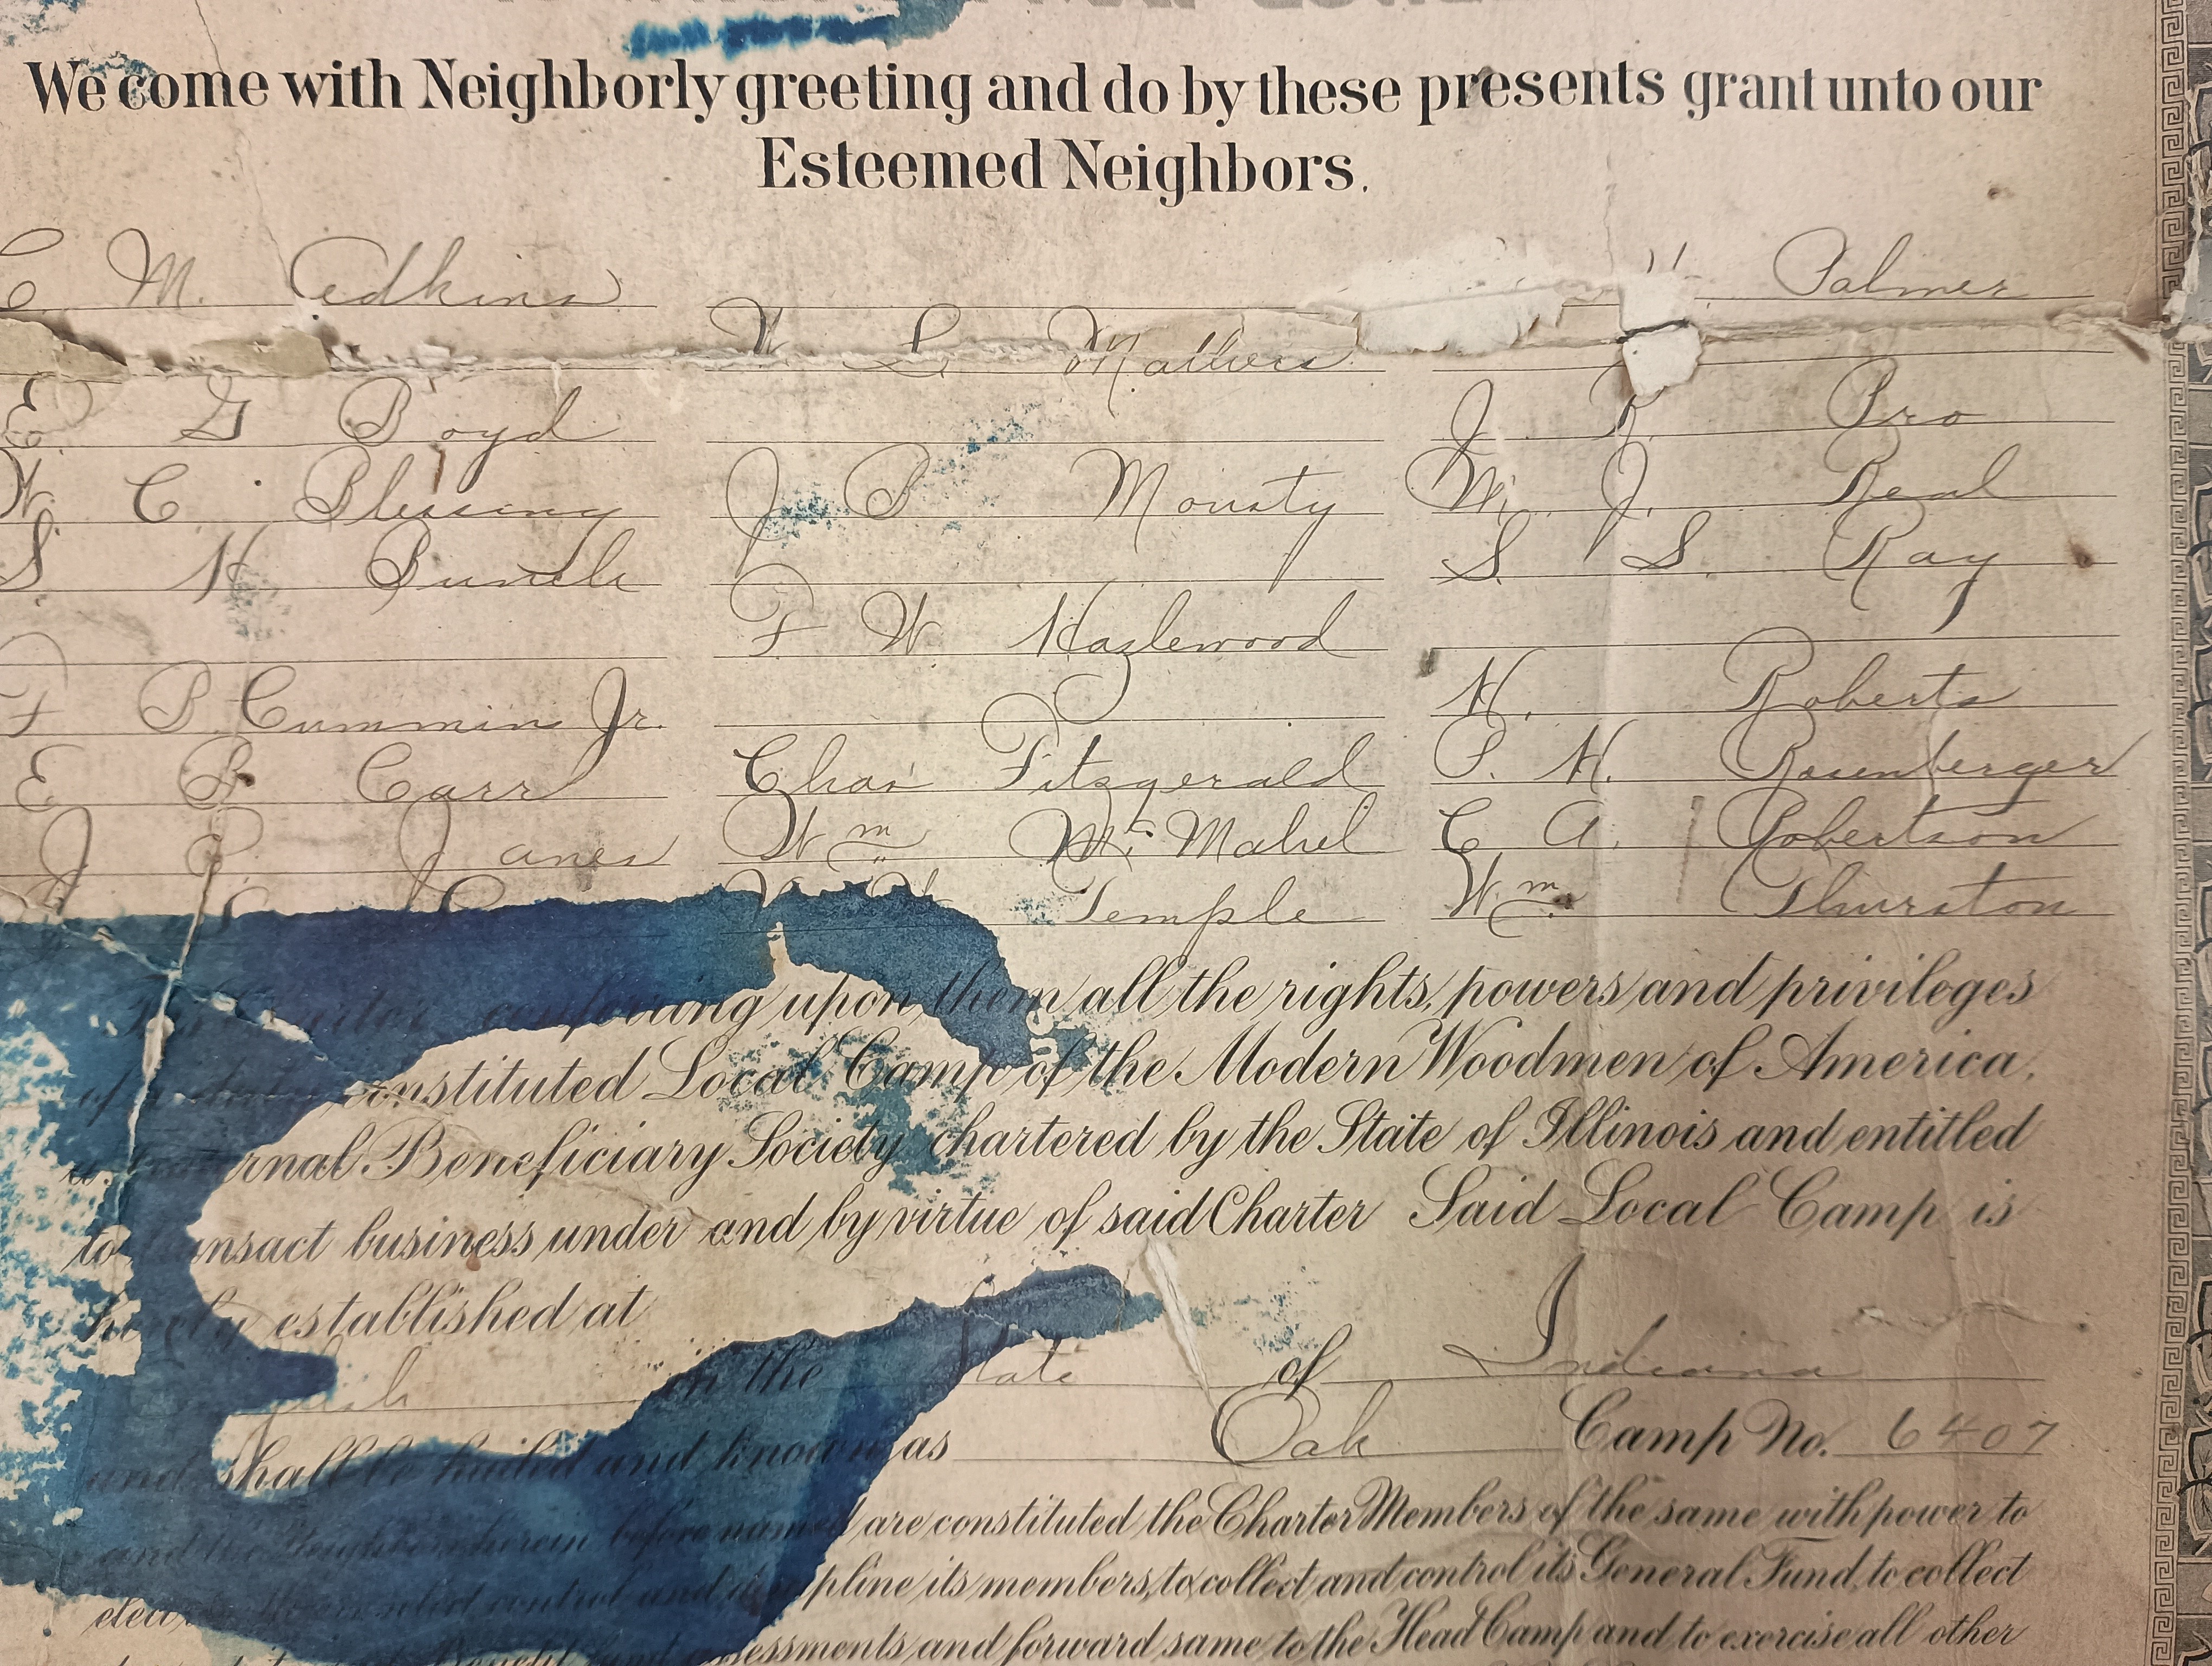 We come with Neighborly greeting and do by these presents grant unto our
Esteemed Neighbors.
C. M. Adkins
W. L. Mathers
Palmer
E G Boyd
J. Pro
W. C. Blessing
J B Mousty
W. J. Real
S. H Buncle
S. S. Ray
F W Hazlewood
F B Cummins Jr.
H. Roberts
E B Carr
Chas Fitzgerald
P. H. Rosenberger
J P Janes
Wm Mc Mahel
C A. Robertson
Temple
Wm Thurston
conferring upon them all the rights, powers and privileges
of constituted Local Camp of the Modern Woodmen of America,
Beneficiary Society chartered by the State of Illinois and entitled
to transact business under and by virtue of said Charter Said Local Camp is
hereby established at
in the State of Indiana
and shall be hailed and known as Oak Camp No. 6407
and the Neighbors herein before named are constituted the Charter Members of the same with power to
control and discipline its members, to collect and control its General Fund, to collect
assessments and forward same to the Head Camp and to exercise all other